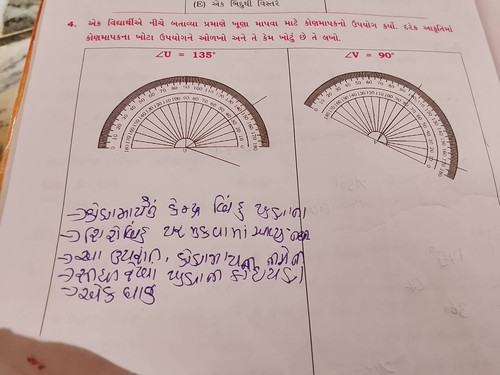 (E) એક બિંદુથી વિસ્તરે
4. એક વિદ્યાર્થીએ નીચે બતાવ્યા પ્રમાણે ખૂણા માપવા માટે કોણમાપકનો ઉપયોગ કર્યો. દરેક આકૃતિમાં
કોણમાપકના ખોટા ઉપયોગને ઓળખો અને તે કેમ ખોટું છે તે લખો.
∠U = 135°
∠V = 90°
→ કોણમાપકનું કેન્દ્ર બિંદુ ખૂણાના
→ શિરોબિંદુ પર મુકવામાં આવ્યું નથી
→ આ ઉપરાંત, કોણમાપકની
→ ખૂણાની કોઈપણ
→ એક બાજુ